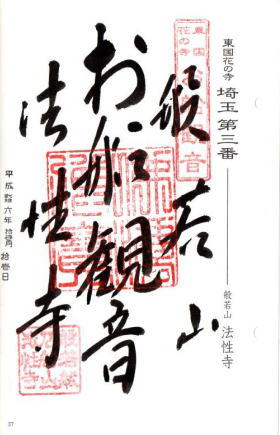 東国花の寺 埼玉 第三番 般若山 法性寺
東国花の寺
般若山
お船観音
法性寺
平成 六年 月 拾壱日
37